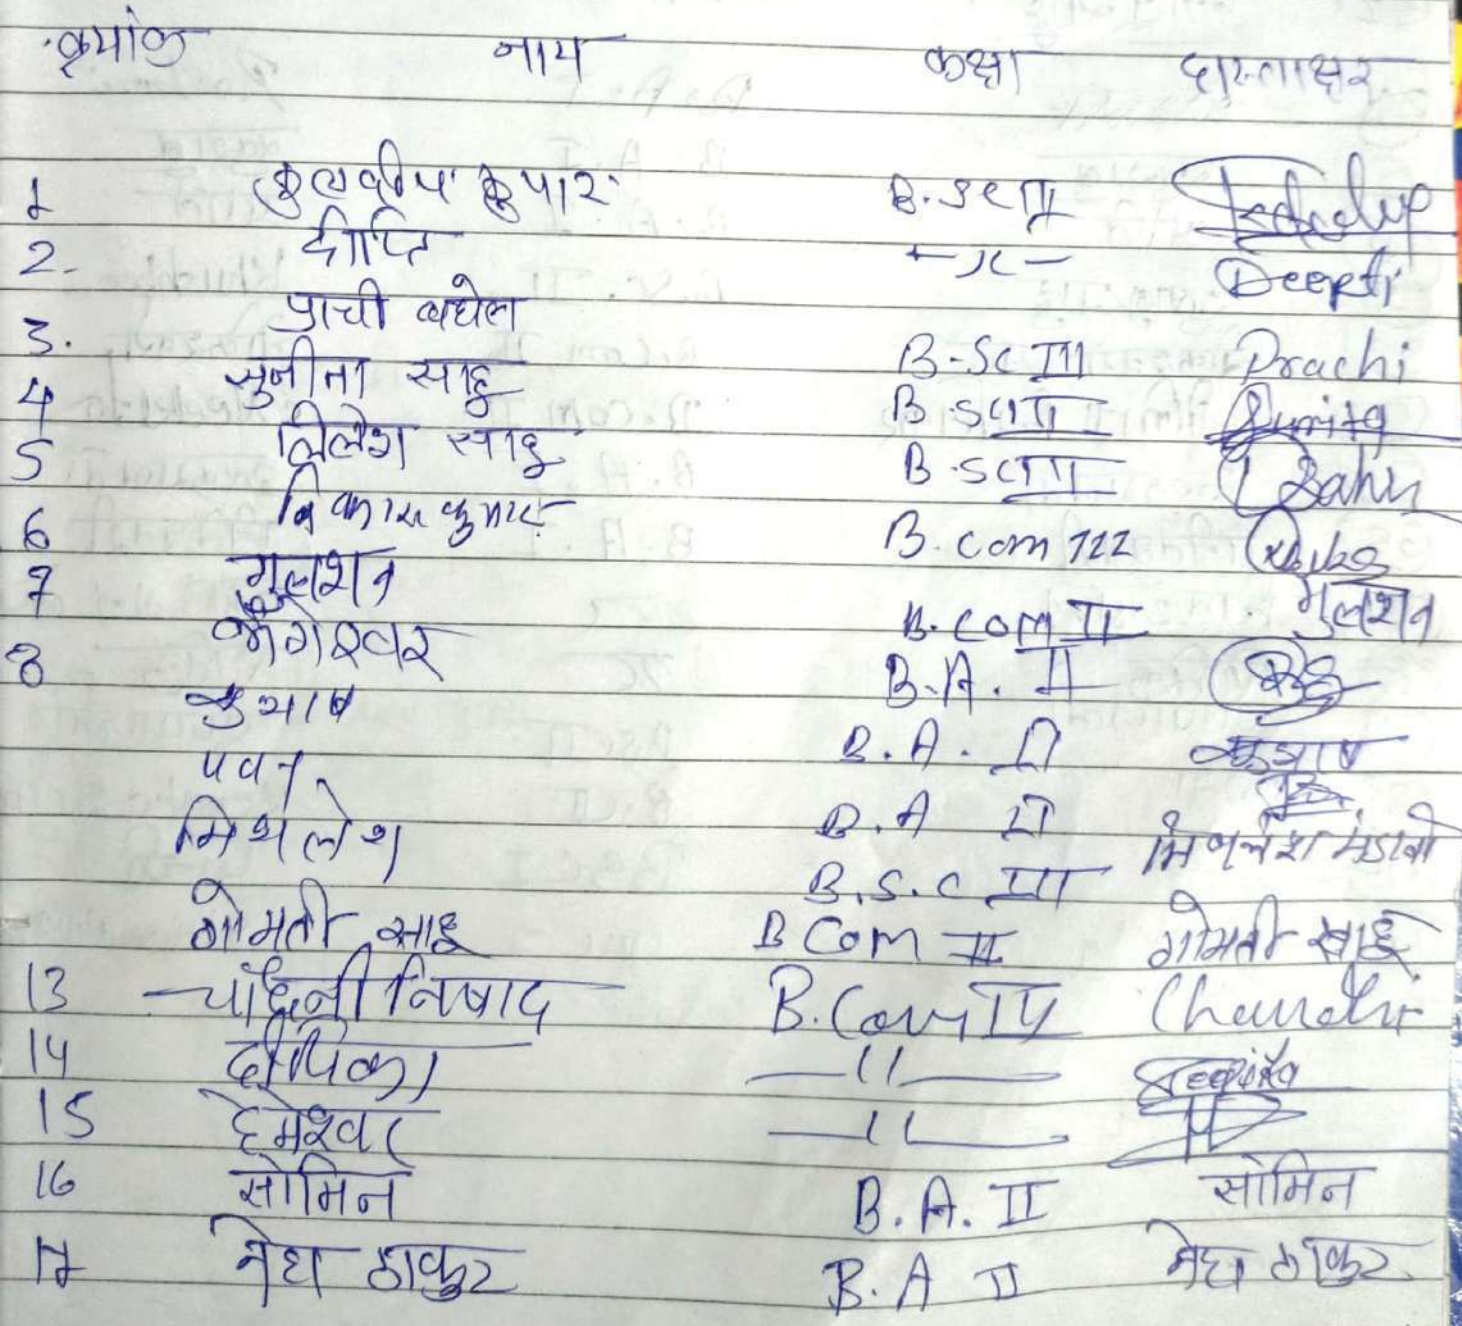 क्रमांक नाम कक्षा हस्ताक्षर
1 कुलदीप कुमार B.Sc II
2. दीप्ति -"- Deepti
3. प्राची बघेल B-Sc III Prachi
4 सुनीता साहू B.Sc III Sunita
5 निलेश साहू B.Sc III Sahu
6 विकास कुमार B.com III
7 गुलशन B.com II गुलशन
8 जोगेश्वर B.A. II
B.A. II
पवन B.A II
मिथलेश B.S.C III मिथलेश मंडावी
गोमती साहू B Com II गोमती साहू
13 चाँदनी निषाद B.Com IV Chandni
14 दीपिका -11- Deepika
15 हेमेश्वर -11-
16 सोमिन B.A. II सोमिन
17 मेघा ठाकुर B.A II मेघा ठाकुर